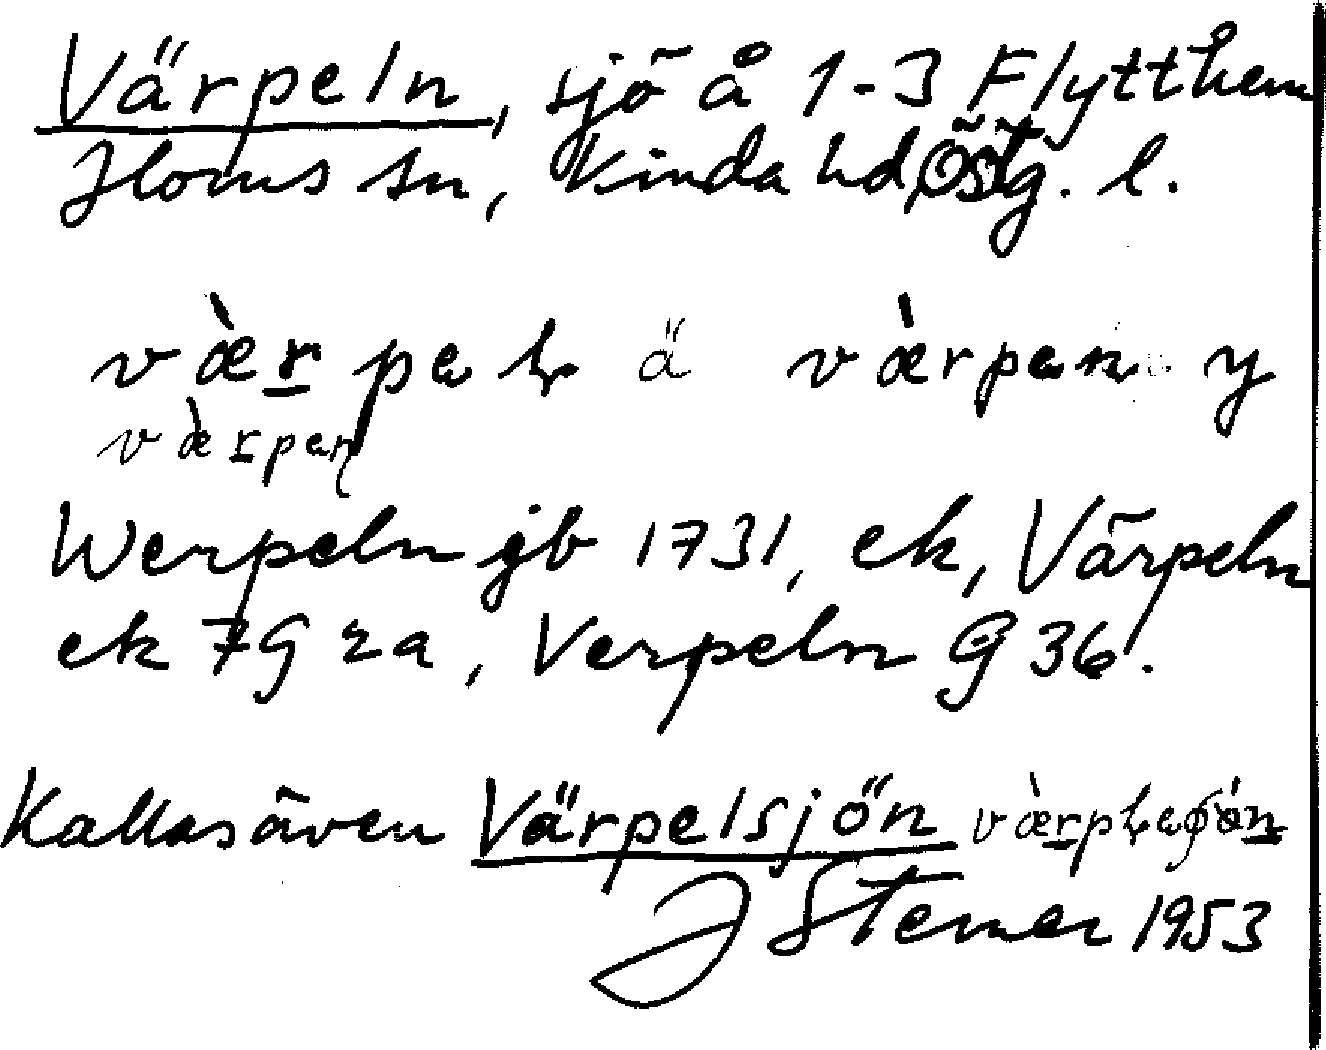 Värpeln, sjö å 1-3 Flytthem
Horns sn, Kinda hd, Östg. l.
vær̲pe ä værpen y
værpen
Werpeln jb 1731, ek, Värpeln
ek 7G 2a, Verpeln G 36.
Kallas även Värpelsjön
J Stemer 1953